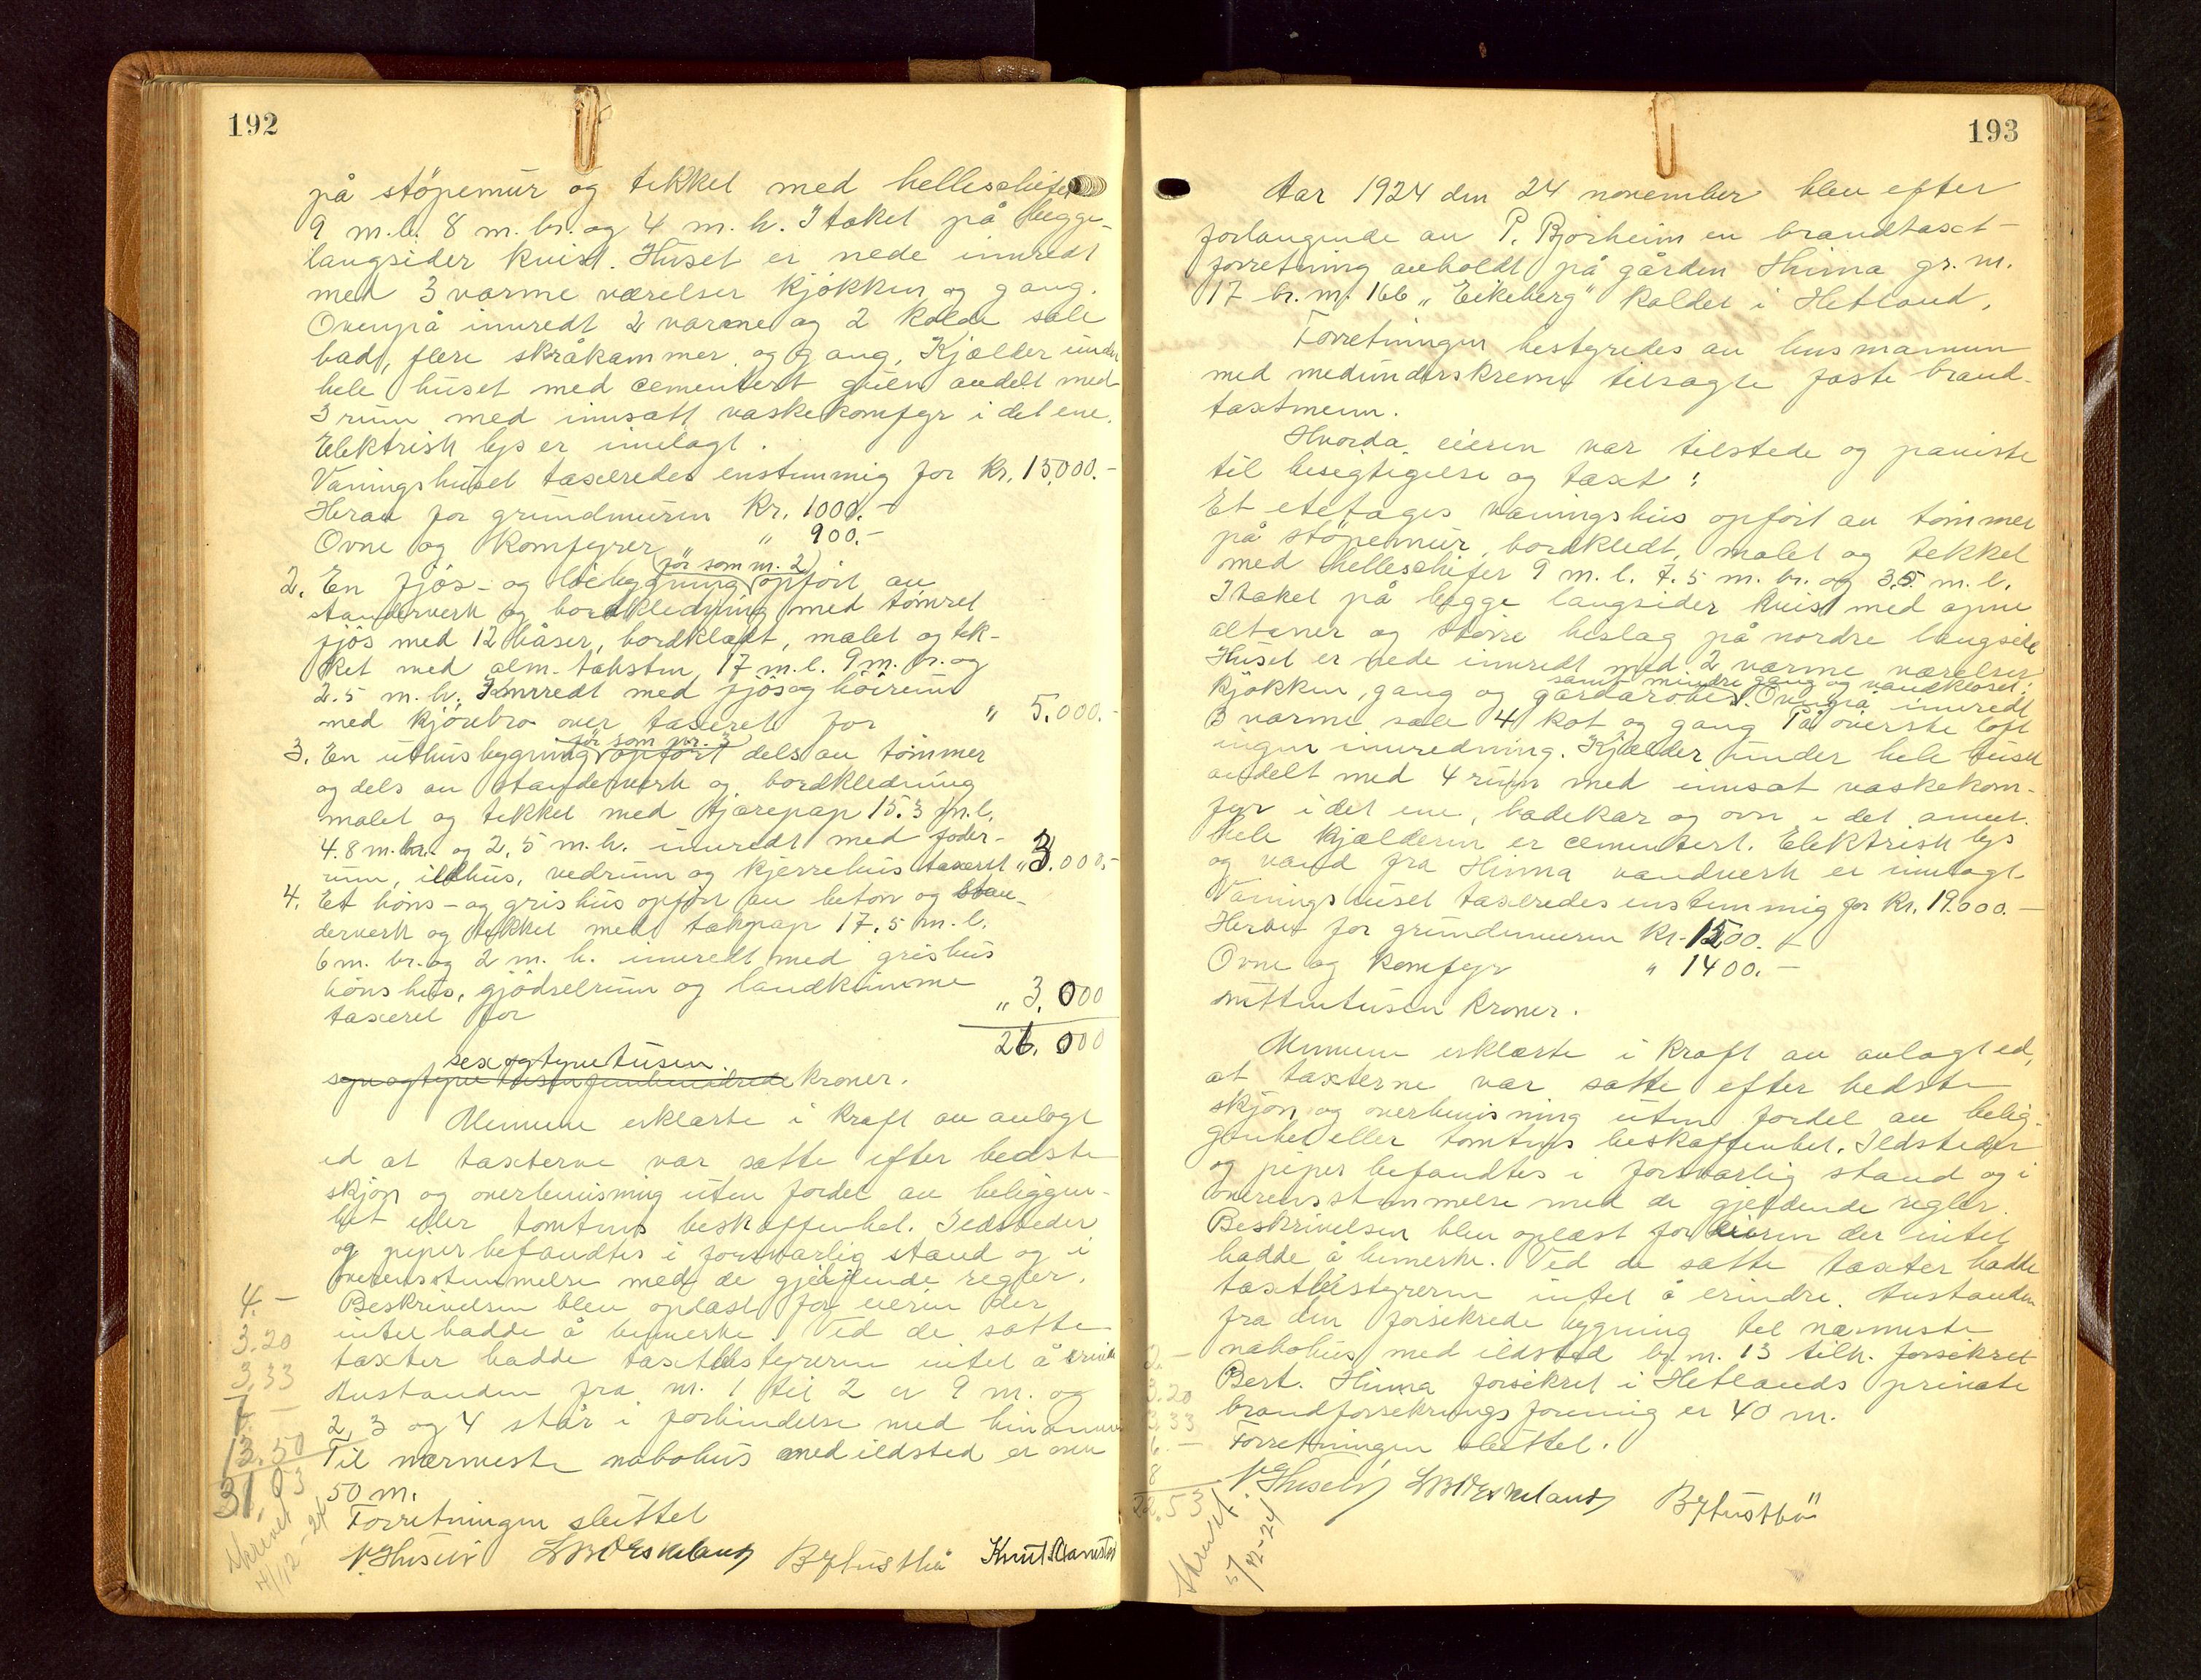 192
på stöpemur og tekket med helleskifer
9 m.l. 8 m. br. og 4 m. h. I taket på begge
langsider kvist. Huset er nede innredt
med 3 varme værelser kjökken og gang.
Ovenpå innredt 2 varme og 2 kolde sale
bad, flere skråkammer og gang. Kjælder under
hele huset med cementert gulv avdelt med
3 rum med innsatt vaskekomfyr i det ene.
Elektrisk lys er innlagt.
Våningshuset taxeredes enstemmig for kr. 15,000.-
Herav for grundmuren kr. 1000.-
Ovne og komfyrer " 900.-
før som nr. 2
2. En fjös- og löebygning opfört av
standerverk og bordkledning med tömret
fjös med 12 båser, bordklædt, malet og tek-
ket med alm. taksten, 17 m.l. 9 m. br. og
2.5 m. h. Innredt med fjös og höirum
med kjörebro over taxeret for " 5.000.-
før som nr. 3
3. En uthusbygning opfört dels av tömmer
og dels av standerverk og bordkledning
malet og tekket med tjærepap 15.3 m.l.
4.8 m. br. og 2,5 m. h. innredt med foder-
rum, ildhus, vedrum og kjerrehus taxeret " 3.000.-
4. Et höns- og grishus opfört av beton og stan-
derverk og tekket med takpap 17.5 m.l.
6 m. br. og 2 m. h. innredt med grishus
hönshus, gjödselrum og landkumme
taxeret for " 3.000
26.000
sexogtyvetusen
syvogtyve tusen femhundrede kroner.
Mennene erklærte i kraft av avlagt
ed at taxterne var satte efter bedste
skjön og overbevisning uten fordel av beliggen-
het eller tomtens beskaffenhet. Ildsteder
og piper befandtes i forsvarlig stand og i
overensstemmelse med de gjeldende regler.
Beskrivelsen blev oplæst for eieren der
intet hadde å bemerke. Ved de satte
taxter hadde taxtbestyreren intet å erindre
Avstanden fra nr. 1 til 2 er 9 m. og
2, 3 og 4 står i forbindelse med hinannen
Til nærmeste nabohus med ildsted er over
50 m.
Forretningen sluttet
4.-
3.20
3.33
7.-
13.50
31.03
Skrevet
4/12-24
193
Aar 1924 den 24 november blev efter
forlangende av P. Bjorheim en brandtaxt-
forretning avholdt på gården Hinna gr. nr.
17 br. nr. 166 "Eikeberg" kaldet i Hetland.
Forretningen bestyredes av lensmannen
med medunderskrevne tilsagte faste brand-
taxtmenn.
Hvorda eieren var tilstede og paaviste
til besigtigelse og taxt:
Et etetages våningshus opfört av tömmer
på stöpemur, bordkledt, malet og tekket
med helleskifer 9 m. l. 7.5 m. br. og 3.5 m. l.
I taket på begge langsider kvist med åpne
altaner og större beslag på nordre langside
Huset er nede innredt med 2 varme værelser
samt mindre gang og vandkloset.
kjökken, gang og garderober. Ovenpå innredt
3 varme sale 4 kot og gang På överste loft
ingen innredning. Kjælder under hele huset
avdelt med 4 rum med innsat vaskekom-
fyr i det ene, badekar og ovn i det annet.
Hele kjælderen er cementert. Elektrisk lys
og vand fra Hinna vandverk er innlagt
Våningshuset taxeredes enstemmig for kr. 19.000.-
Herav for grundmuren kr. 1500.-
Ovne og komfyr " 1400.-
nittentusen kroner.
Mennene erklærte i kraft av avlagt ed,
at taxterne var satte efter bedste
skjön og overbevisning uten fordel av belig-
genhet eller tomtens beskaffenhet. Ildsteder
og piper befandtes i forsvarlig stand og i
overensstemmelse med de gjeldende regler.
Beskrivelsen blev oplæst for eieren der intet
hadde å bemerke. Ved de satte taxter hadde
taxtbestyreren intet å erindre. Avstanden
fra den forsikrede bygning til nærmeste
nabohus med ildsted br. nr. 13 tilh. forsikret
Bert. Hinna forsikret i Hetlands private
brandforsikringsforening er 40 m.
Forretningen sluttet.
2.-
3.20
3.33
6.-
8
22.53
Skrevet
5/12-24